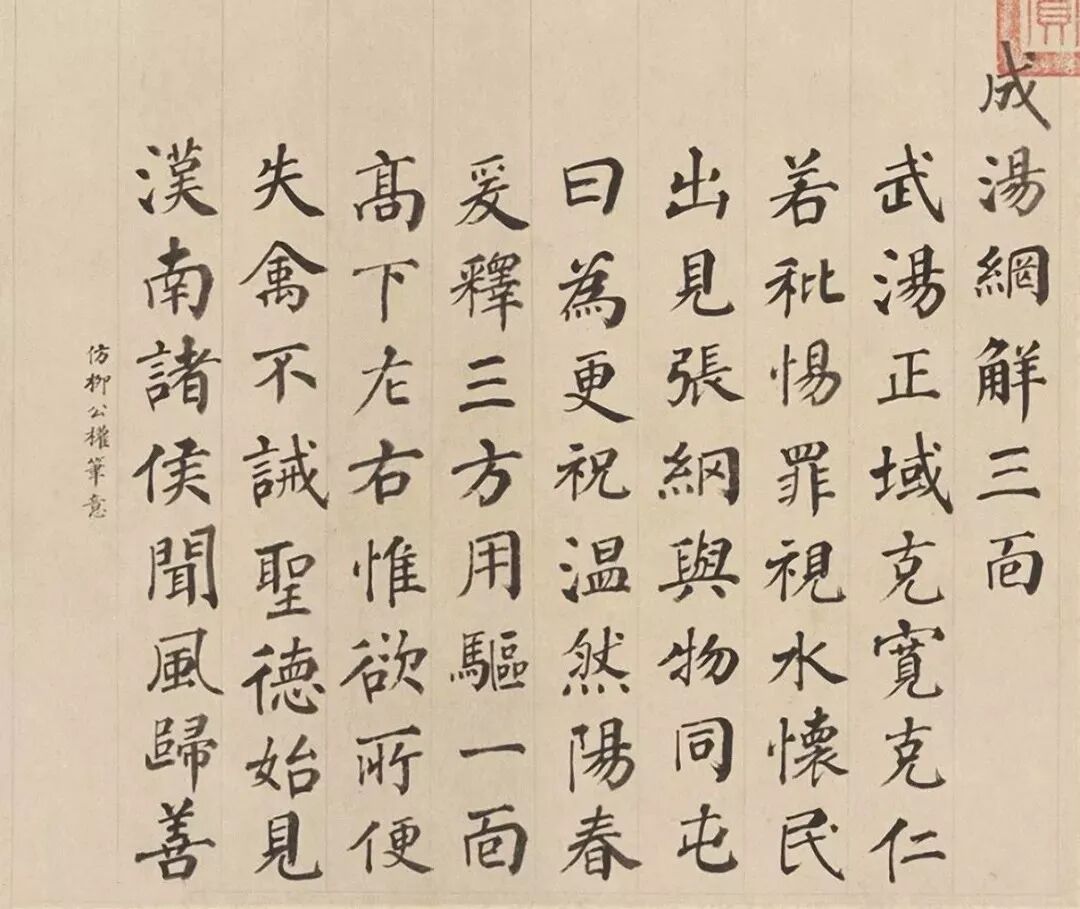 成湯網觧三靣
武湯正域克寬克仁
若秕惕罪視水懷民
出見張網與物同屯
曰為更祝温然陽春
爰釋三方用驅一靣
髙下左右惟欲所便
失禽不誡聖德始見
漢南諸侯聞風歸善
仿柳公權筆意